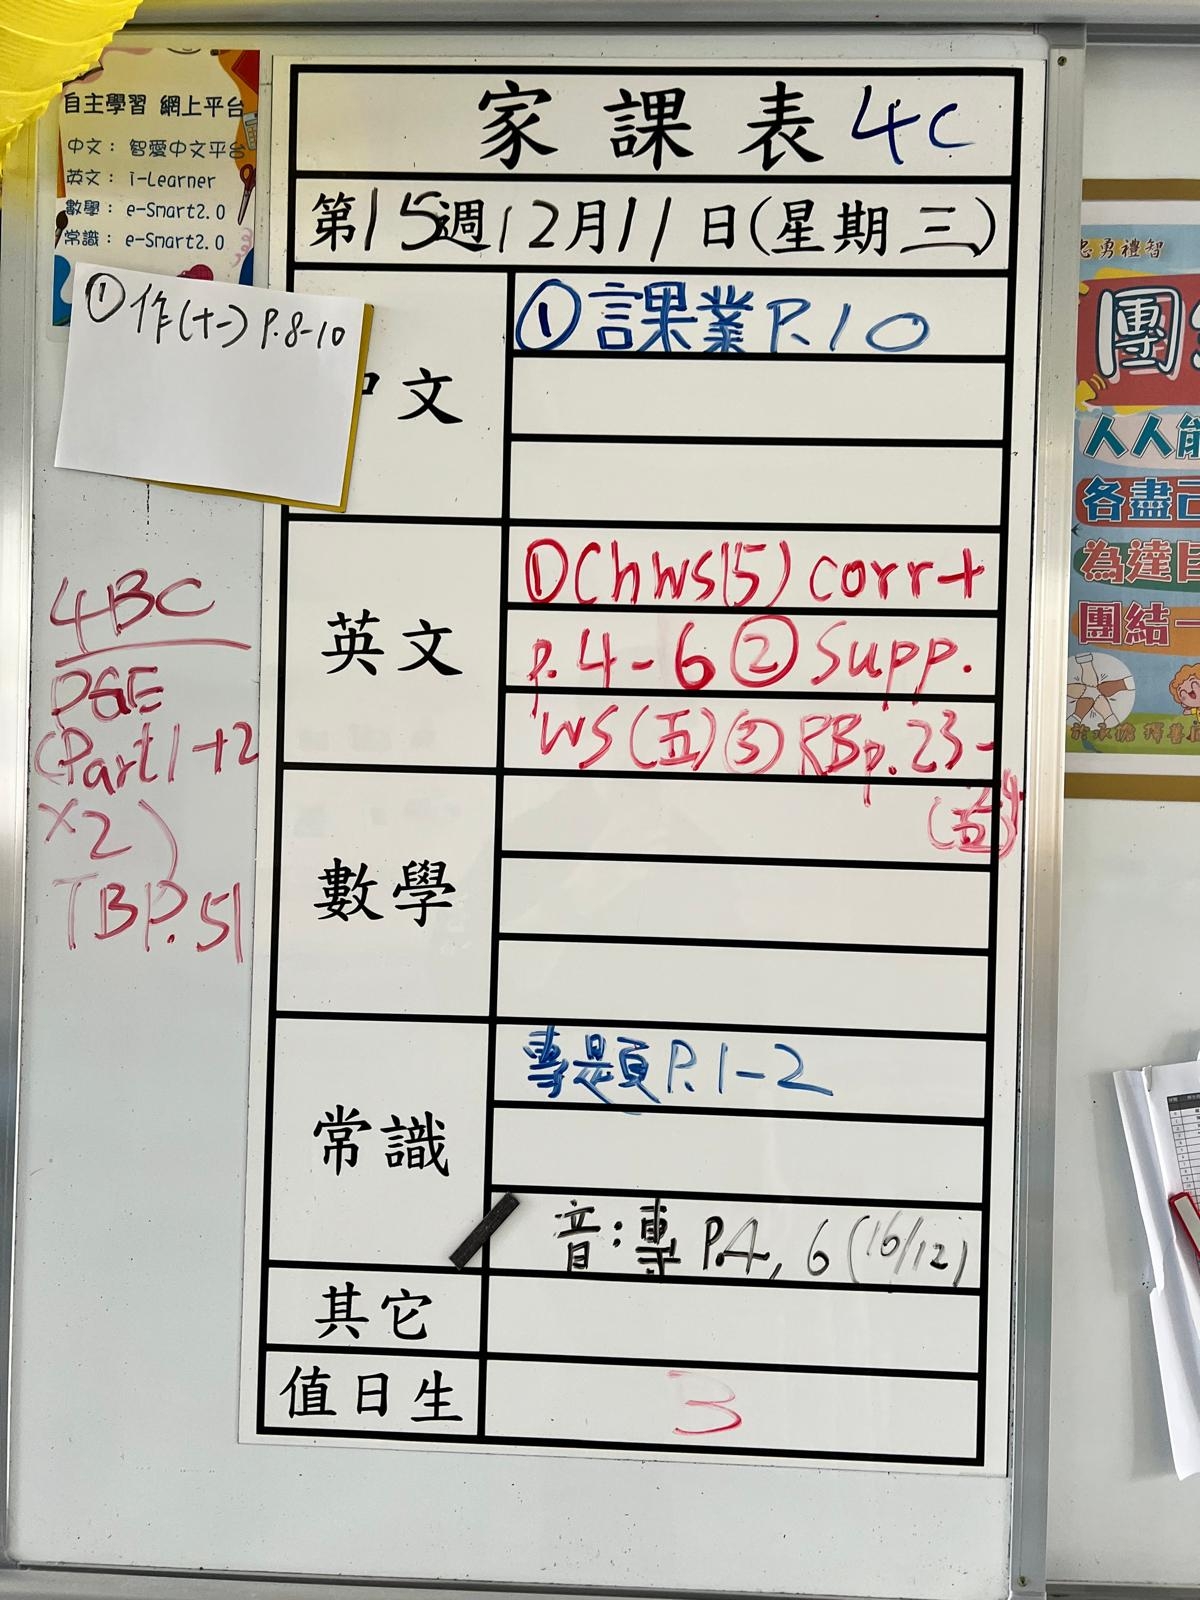 自主學習 網上平台
中文： 智愛中文平台
英文： i-Learner
數學： e-Smart2.0
常識： e-Smart2.0
①作(十一) P.8-10
4BC
(Part 1+2
×2)
TBP.51
家課表 4C
第15週12月11日(星期三)
中文
①課業P.10
英文
①ChWS(15) corr+
p.4-6 ②Supp.
WS(五)③RBp.23-
24
(五)
數學
常識
專題P.1-2
音:專 P.4, 6 (16/12)
其它
值日生
3
忠勇禮智
團
人人能
各盡己
為達目
團結一